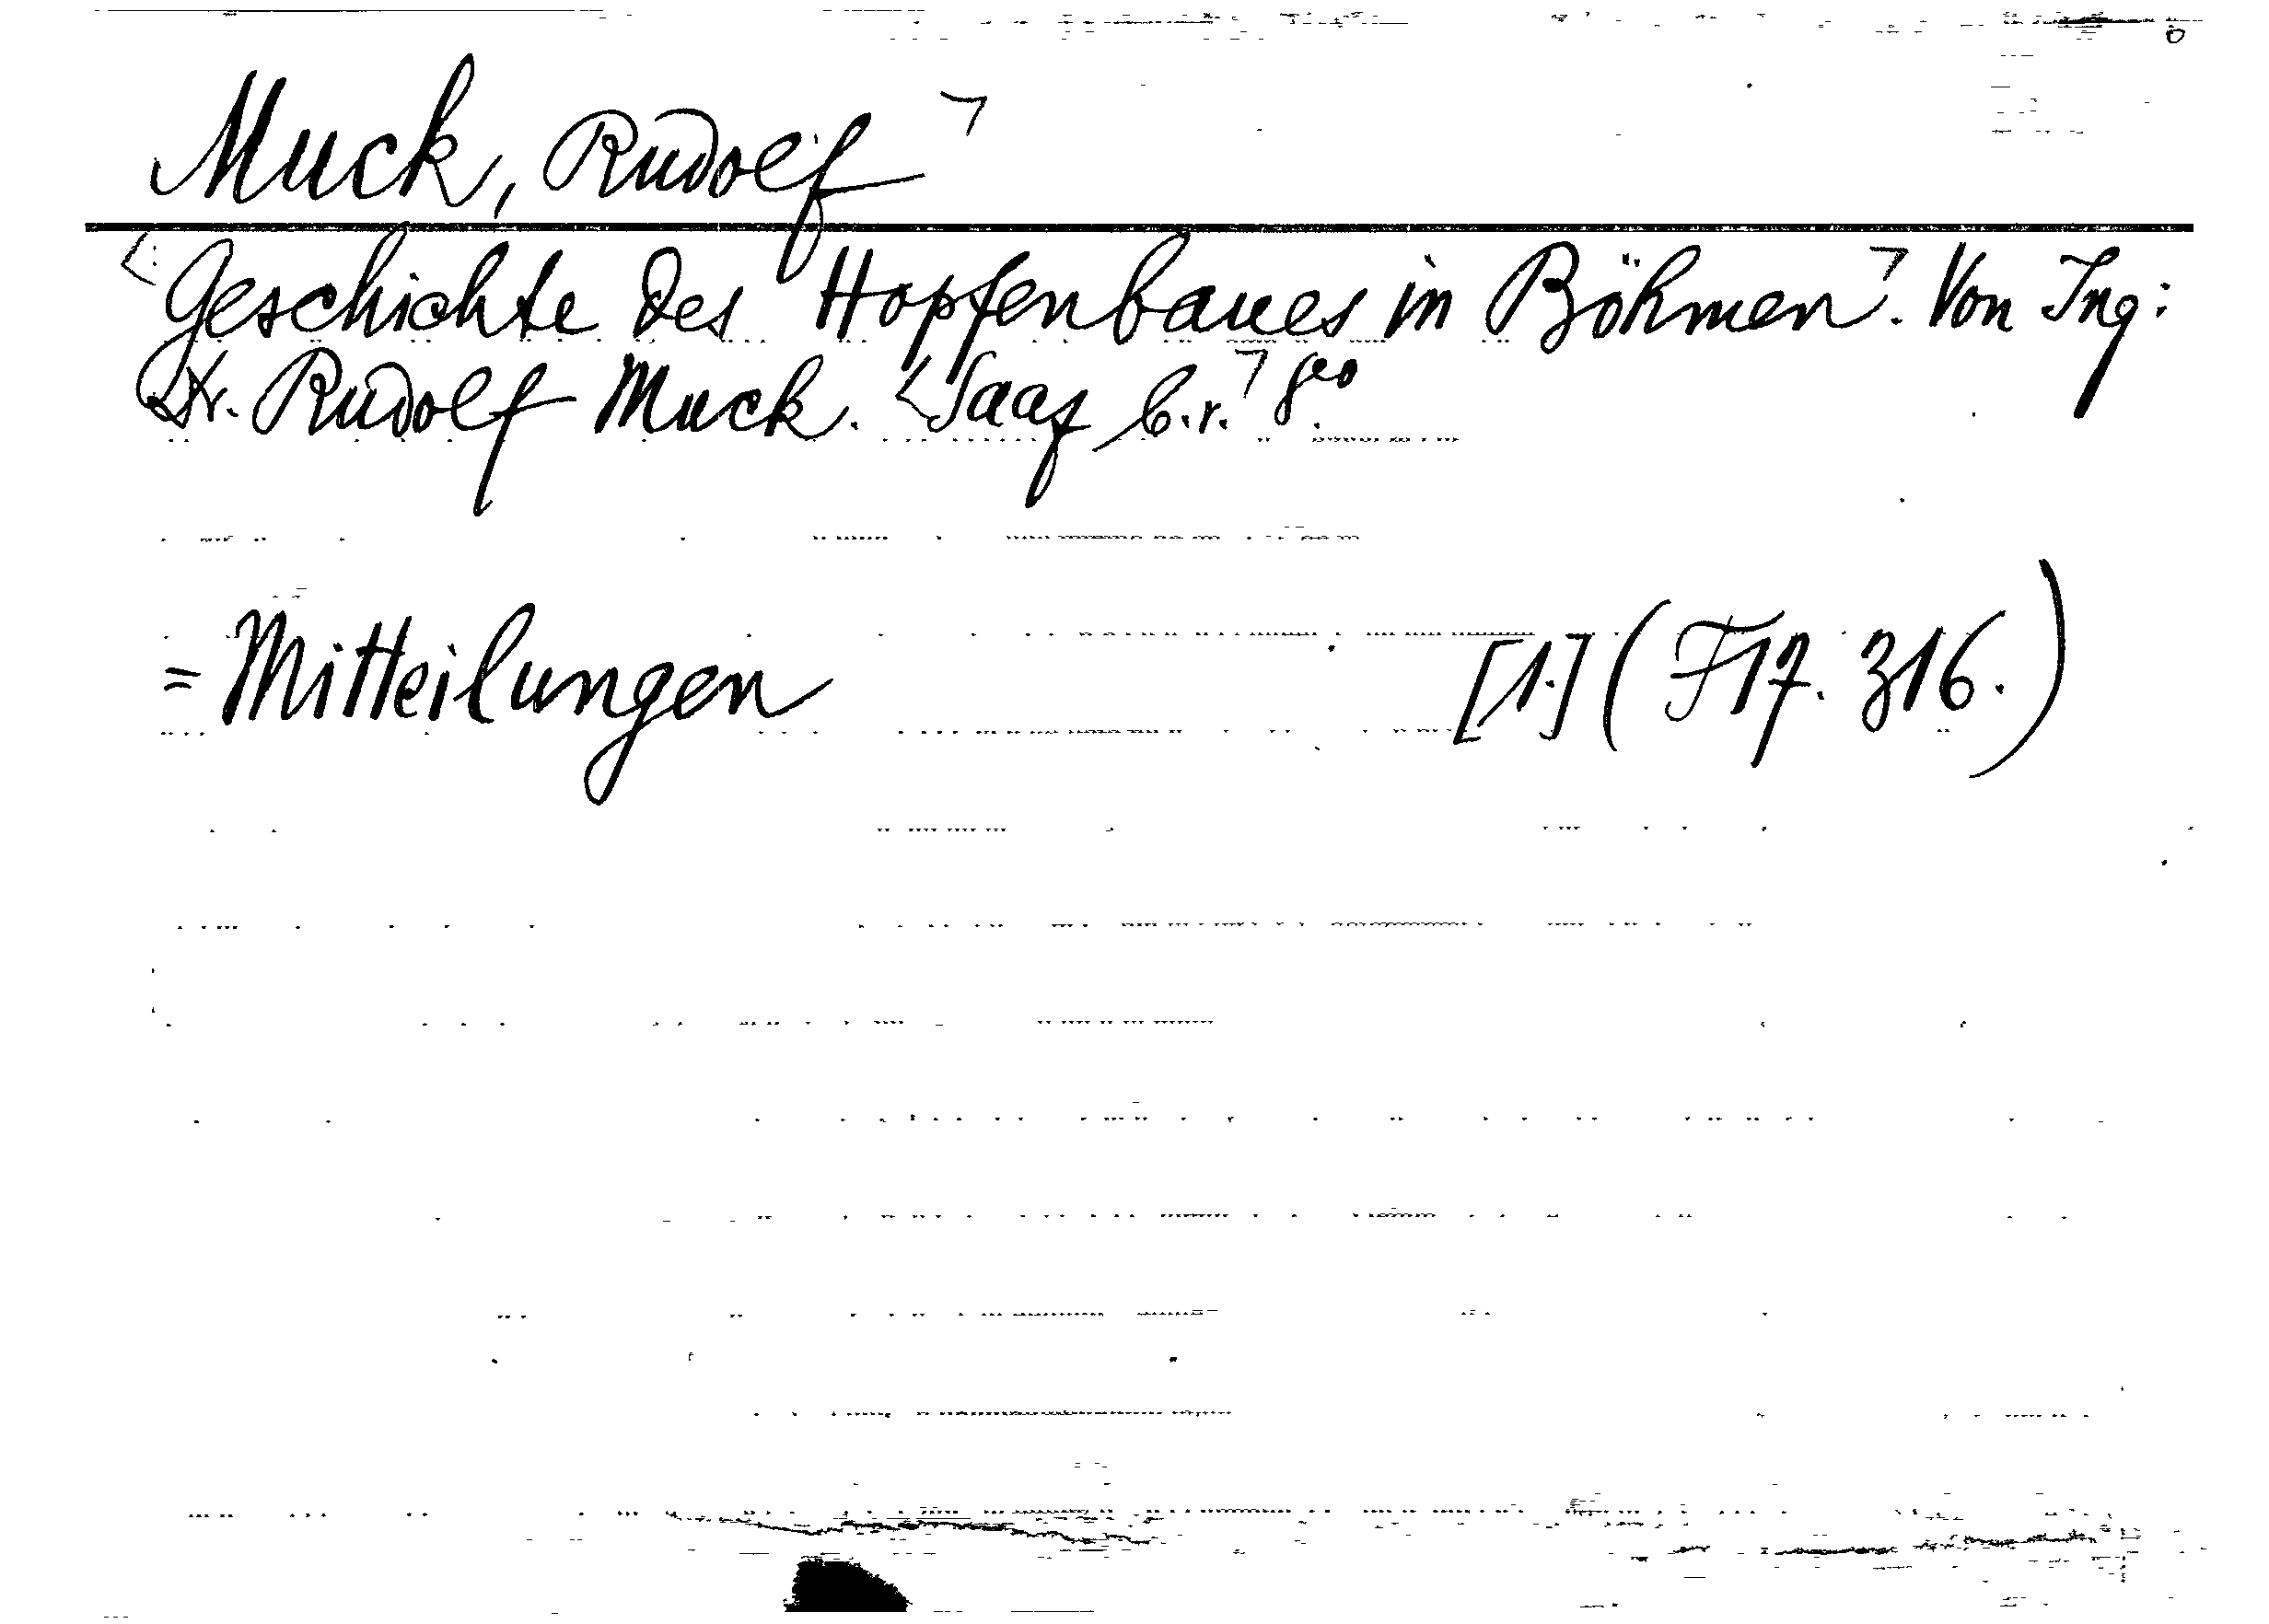 Muck, Rudolf ¬
<Geschichte des Hopfenbaues in Böhmen¬. Von Ing:
Dr. Rudolf Muck. <Saaz b.r.¬ 8°
= Mitteilungen [1.] (F17. 316.)